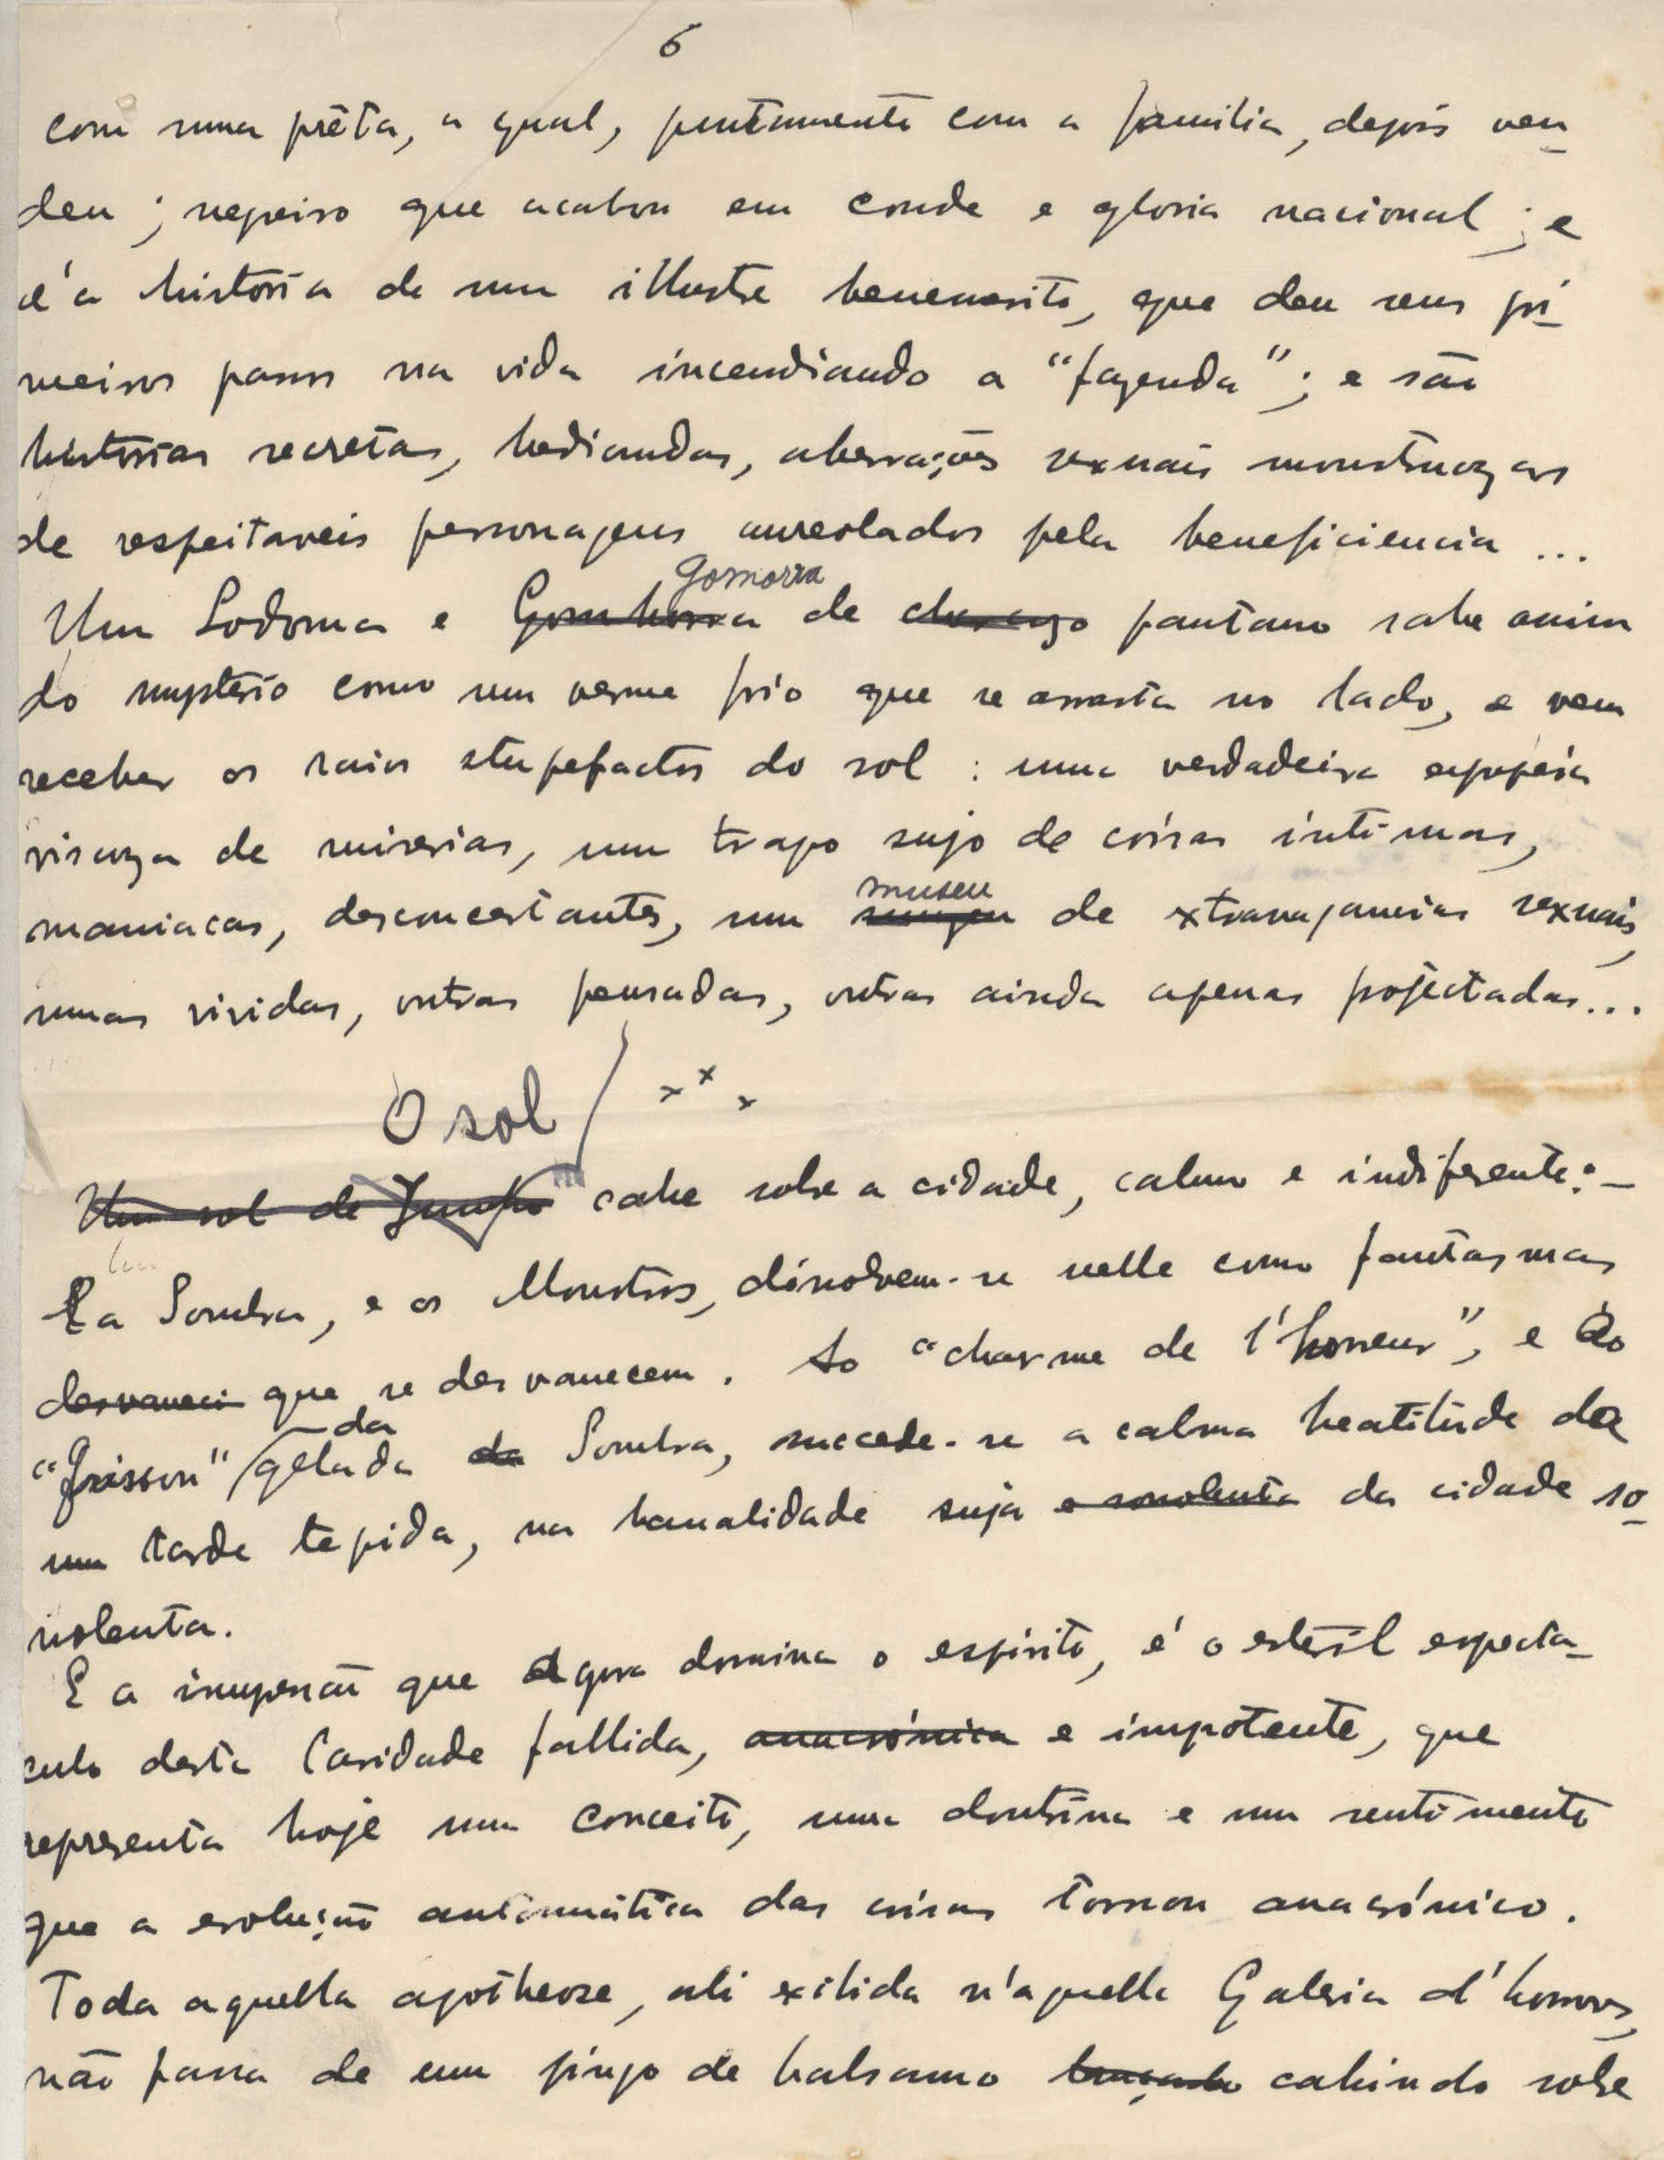 6
com uma prêta, a qual, juntamente com a familia, depois ven-
deu; negreiro que acabou em conde e gloria nacional; e
é a historia de um illustre benemerito, que deu seus pri-
meiros passos na vida incendiando a "fazenda"; e são
historias secretas, hediondas, aberrações sexuais monstruozas
de respeitaveis personagens aureolados pela beneficiencia...
Gomorra
Um Sodoma e Gomhorra de charco pantano sahe assim
do mysterio como um verme frio que se arrasta no lodo, e vem
receber os raios stupefactos do sol: uma verdadeira epopeia
viscoza de miserias, um trapo sujo de coisas intimas,
museu
maniacas, desconcertantes, um de extravagancias sexuais,
umas vividas, outras pensadas, outras ainda apenas projectadas...
O sol x x x
Um sol de Junho cahe sobre a cidade, calmo e indiferente: -
E a Sombra, e os Monstros, dissolvem-se nelle como fantasmas
desvaneci que se desvanecem. Ao "charme de l'horreur", e ao
da
"frisson" gelada da Sombra, succede-se a calma beatitude de
uma tarde tepida, na banalidade suja e sonolenta da cidade so-
nolenta.
E a impressão que agora domina o espirito, é o esteril especta-
culo desta Caridade fallida, anacrónica e impotente, que
representa hoje um conceito, uma doutrina e um sentimento
que a evolução automática das coisas tornou anacrónico.
Toda aquella apotheoze, ali exibida n'aquella Galeria d'honra,
não passa de um pingo de balsamo lançado cahindo sobre